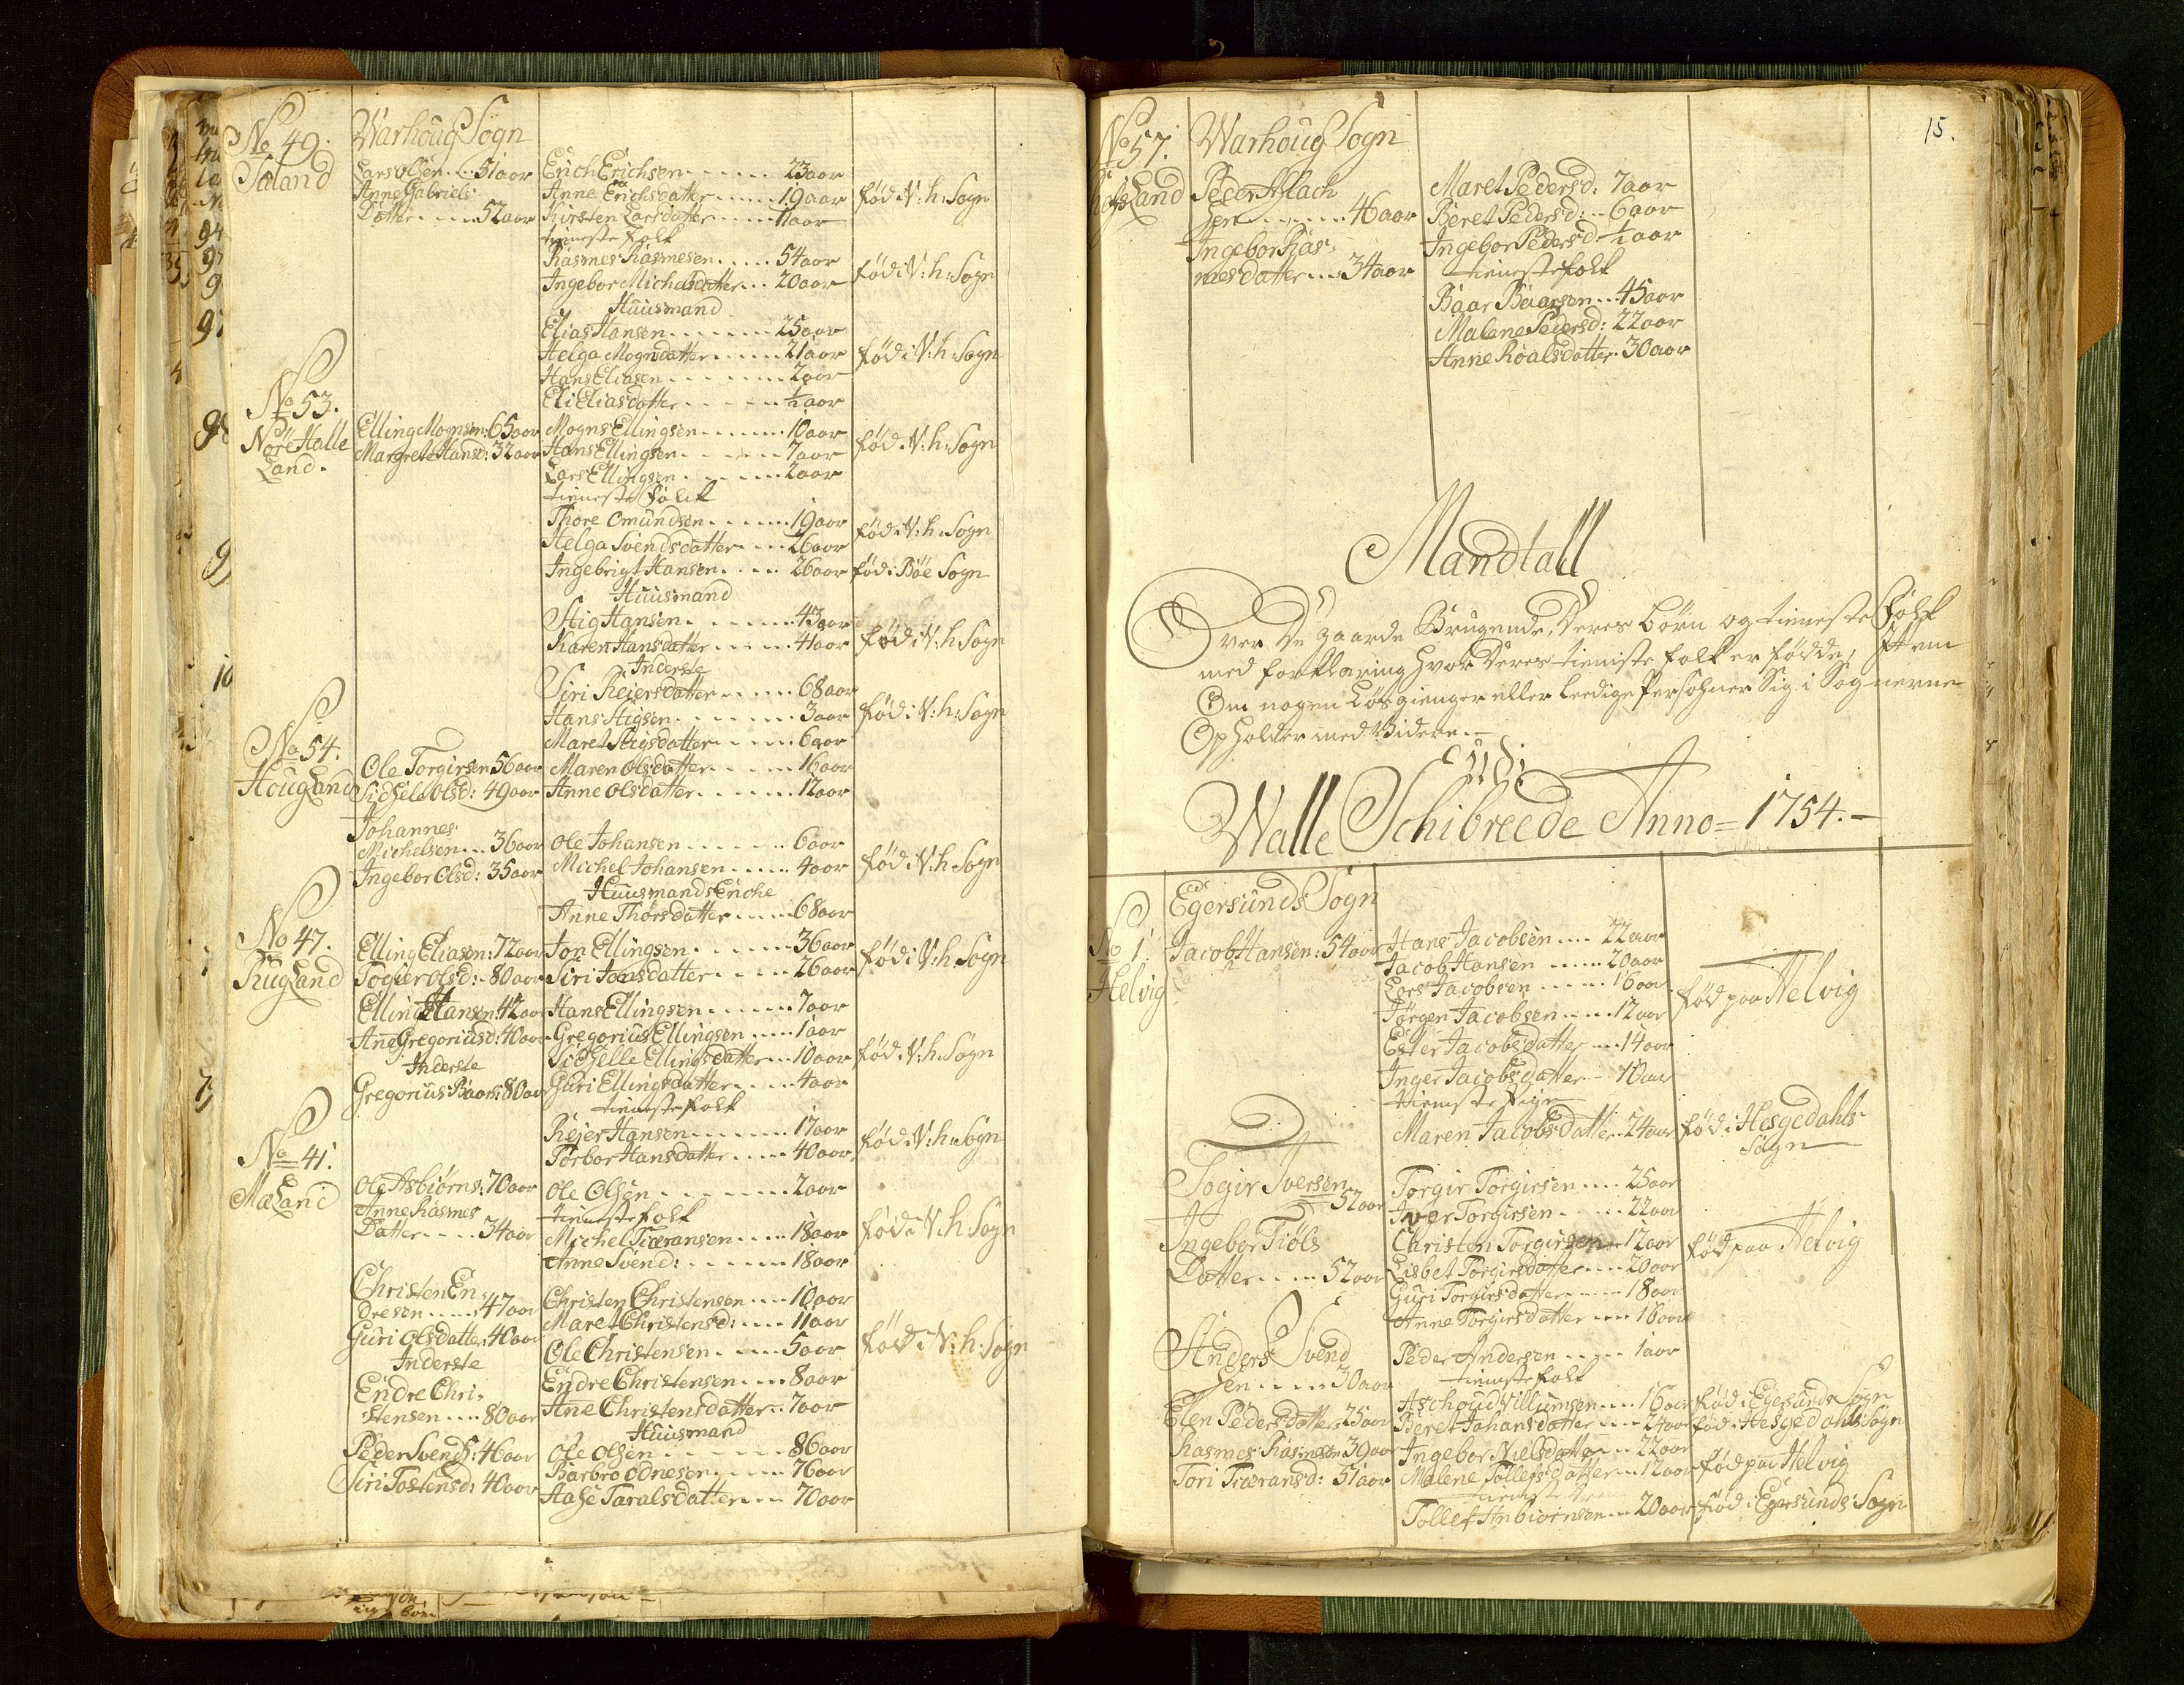 No 49.
Saland
Warhoug Sogn
Lars Olsen . . 51 aar
Anne Gabriels
Datter . . . . 52 aar
Erich Erichsen . . . . . . 23 aar
Anne Erichsdatter . . . . . 19 aar
Kirsten Larsdatter . . . . . 11 aar
tieneste Folk
Rasmes Rasmesen . . . . . 54 aar
Ingebor Michelsdatter . . . 20 aar
Huusmand
Elias Hansen . . . . . . . 25 aar
Helga Mognsdatter . . . . . 21 aar
Hans Eliasen . . . . . . . 2 aar
Eli Eliasdatter . . . . . . ½ aar
fød i V: h: Sogn
fød i V: h: Sogn
fød i V: h: Sogn
No 53.
Nøre Halle
Land.
Elling Mognsen: 65 aar
Margrete Hansd: 32 aar
Mogns Ellingsen . . . . . . 10 aar
Hans Ellingsen . . . . . . 7 aar
Lars Ellingsen . . . . . . 2 aar
tieneste Folk
Thore Omundsen . . . . . . 19 aar
Helga Svendsdatter . . . . 26 aar
Ingebrigt Hansen . . . . . 26 aar
Huusmand
Stig Hansen . . . . . . . 43 aar
Karen Hansdatter . . . . . 41 aar
Inderste
Siri Reiersdatter . . . . . 68 aar
Hans Stigsen . . . . . . . 3 aar
Maret Stigsdatter . . . . . 6 aar
fød i V: h: Sogn
fød i V: h: Sogn
fød i Böe Sogn
fød i V: h: Sogn
fød i V: h: Sogn
No 54.
Hougland
Ole Torgirsen 56 aar
Sidsele Olsd: 49 aar
Maren Olsdatter . . . . . 16 aar
Anne Olsdatter . . . . . . 12 aar
Johannes
Michelsen . . . 36 aar
Ingebor Olsd: 35 aar
Ole Johansen . . . . . . . 6 aar
Michel Johansen . . . . . 4 aar
Huusmands Enche
Anne Thorsdatter . . . . . 68 aar
fød i V: h: Sogn
No 47.
Rugland
Elling Eliasen: 72 aar
Togier Olsd: . 80 aar
Jon Ellingsen . . . . . . 36 aar
Siri Jonsdatter . . . . . 26 aar
fød i V: h: Sogn
Elling Hansen: 42 aar
Ane Gregoriusd: 40 aar
Inderste
Gregorius Baars: 80 aar
Hans Ellingsen . . . . . . 7 aar
Gregorius Ellingsen . . . . 1 aar
Sidselle Ellingsdatter . . 10 aar
Guri Ellingsdatter . . . . 4 aar
tieneste folk
Reier Hansen . . . . . . . 17 aar
Torbor Hansdatter . . . . 40 aar
fød i V: h: Sogn
fød i V: h: Sogn
No 41.
Maland
Ole Asbiørns: 70 aar
Anne Rasmes
Datter . . . . 34 aar
Ole Olsen . . . . . . . . 2 aar
tieneste folk
Michel Tiæransen . . . . . 18 aar
Anne Svend: . . . . . . . 18 aar
fød i V: h: Sogn
Christen En-
dresen . . . . . 47 aar
Guri Olsdatter: 40 aar
Inderste
Endre Chri-
stensen . . . . 80 aar
Christen Christensen . . . 10 aar
Maret Christensd: . . . . 11 aar
Ole Christensen . . . . . 5 aar
Endre Christensen . . . . 8 aar
Ane Christensdatter . . . 7 aar
fød i V: h: Sogn
Huusmand
Peder Svends: 46 aar
Siri Tostensd: 40 aar
Ole Olsen . . . . . . . . 86 aar
Barbro Odnesen . . . . . . 76 aar
Aase Taralsdatter . . . . 70 aar
15.
No 57.
Warhoug Sogn
Peder Aslach
sen . . . . . . 46 aar
Ingebor Ras-
mesdatter . . . 34 aar
Maret Pedersd: 7 aar
Beret Pedersd: . . 6 aar
Ingebor Pedersd ½ aar
tieneste folk
Baar Baarsen . . 45 aar
Malene Pedersd: 22 aar
Anne Roalsdatter . 30 aar
Mandtall
Over De gaarde Brugende, Deres børn og tieneste Folk
med forklaring hvor Deres tieneste folk er födde, Item
Om nogen Løsgienger eller Leedige Persohner Sig i Sognerne
Opholder med Videre. –
Udi
Walle Schibreede Anno = 1754. –
Egersunds Sogn
No 1.
Helvig
Jacob Hansen: 54 aar
Hans Jacobsen . . . . 22 aar
Jacob Hansen . . . . . 20 aar
Lars Jacobsen . . . . . 16 aar
Jørgen Jacobsen . . . . 12 aar
Ester Jacobsdatter . . . 14 aar
Inger Jacobsdatter . . . 10 aar
tieneste Pige
Maren Jacobsdatter . . 24 aar
fød paa Helvig
fød i Hesgedahls
Sogn
Togir Iversen
52 aar
Ingebor Tiøls
Datter . . . . . 52 aar
Torgir Torgirsen . . . . 25 aar
Iver Torgirsen . . . . . 22 aar
Christen Torgirsen . . . 12 aar
Lisbet Torgirsdatter . . . 20 aar
Guri Torgirsdatter . . . . 18 aar
Anne Torgirsdatter . . . 16 aar
fød paa Helvig
Anders Svend
sen . . . . . 30 aar
Elen Pedersdatter 25 aar
Peder Andersen . . . . . 1 aar
tieneste folk
Aschoud Villumsen . . . . 16 aar
Beret Johansdatter . . . . 24 aar
fød i Egersunds Sogn
fød i Hesgedahls Sogn
Rasmes Rasmesen 39 aar
Tori Tiæransd: 51 aar
Ingebor Nielsdatter . . . 22 aar
Malene Tollefsdatter . . . 12 aar
fød paa Helvig
Tollef Anbiørnsen . . . 20 aar
fød i Egersunds Sogn